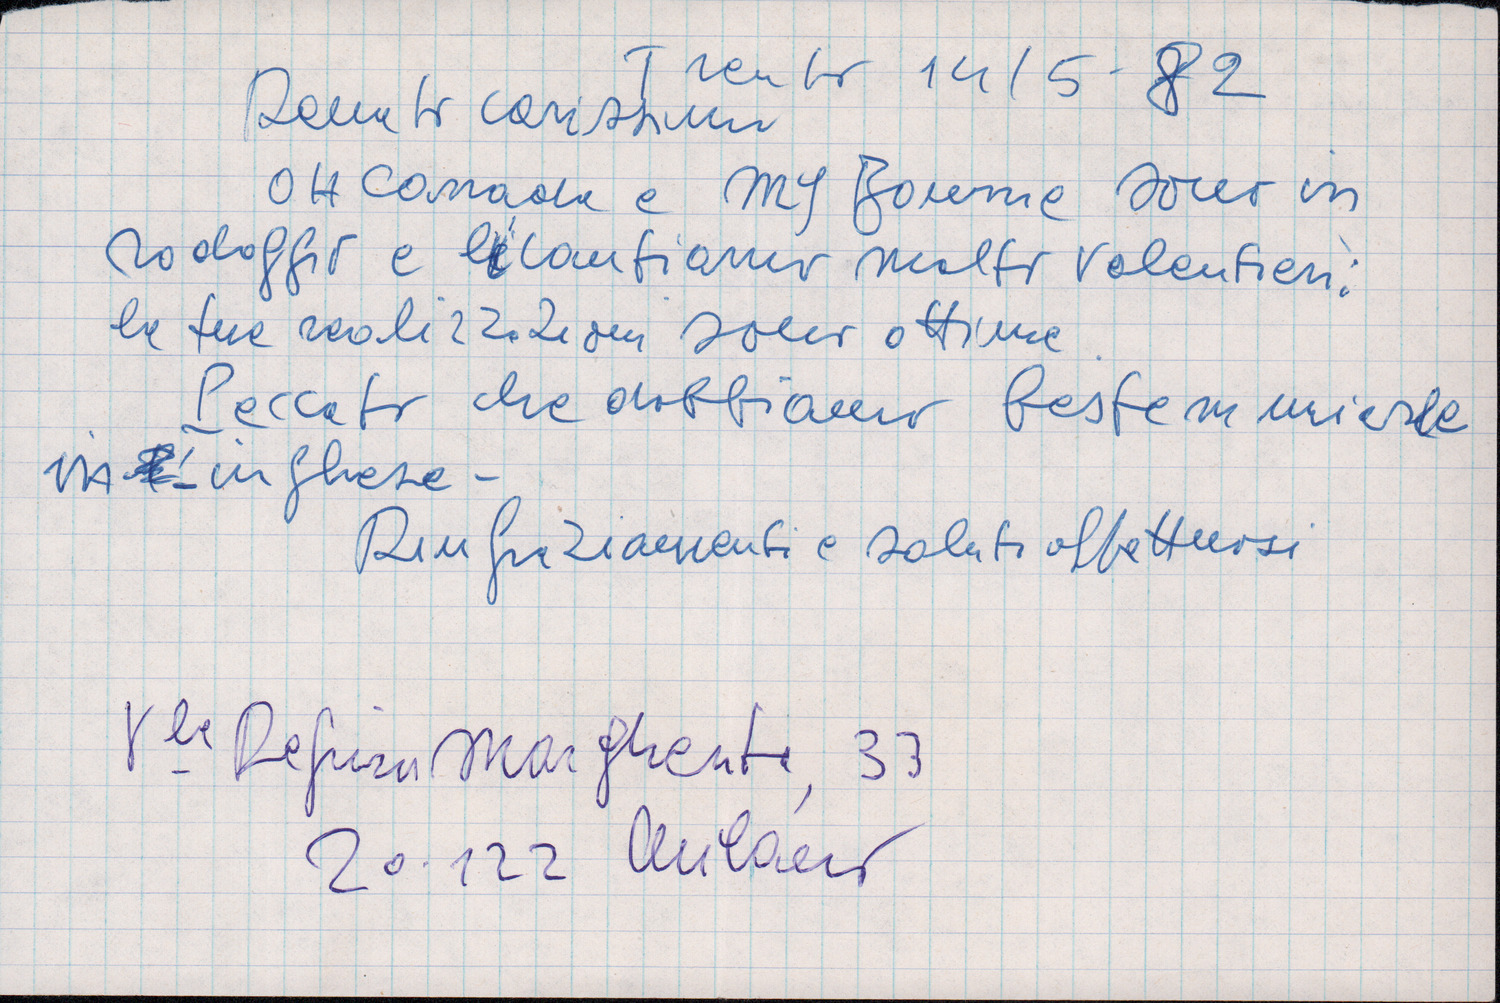 Trento 14/5-82
Renato carissimo
OH Canada e MY Bonnie sono in
rodaggio e li cantiamo molto volentieri:
le tue realizzazioni sono ottime.
Peccato che dobbiamo bestemmiarle
in inglese -
Ringraziamenti e saluti affettuosi
Vle Regina Margherita, 33
20.122 Milano